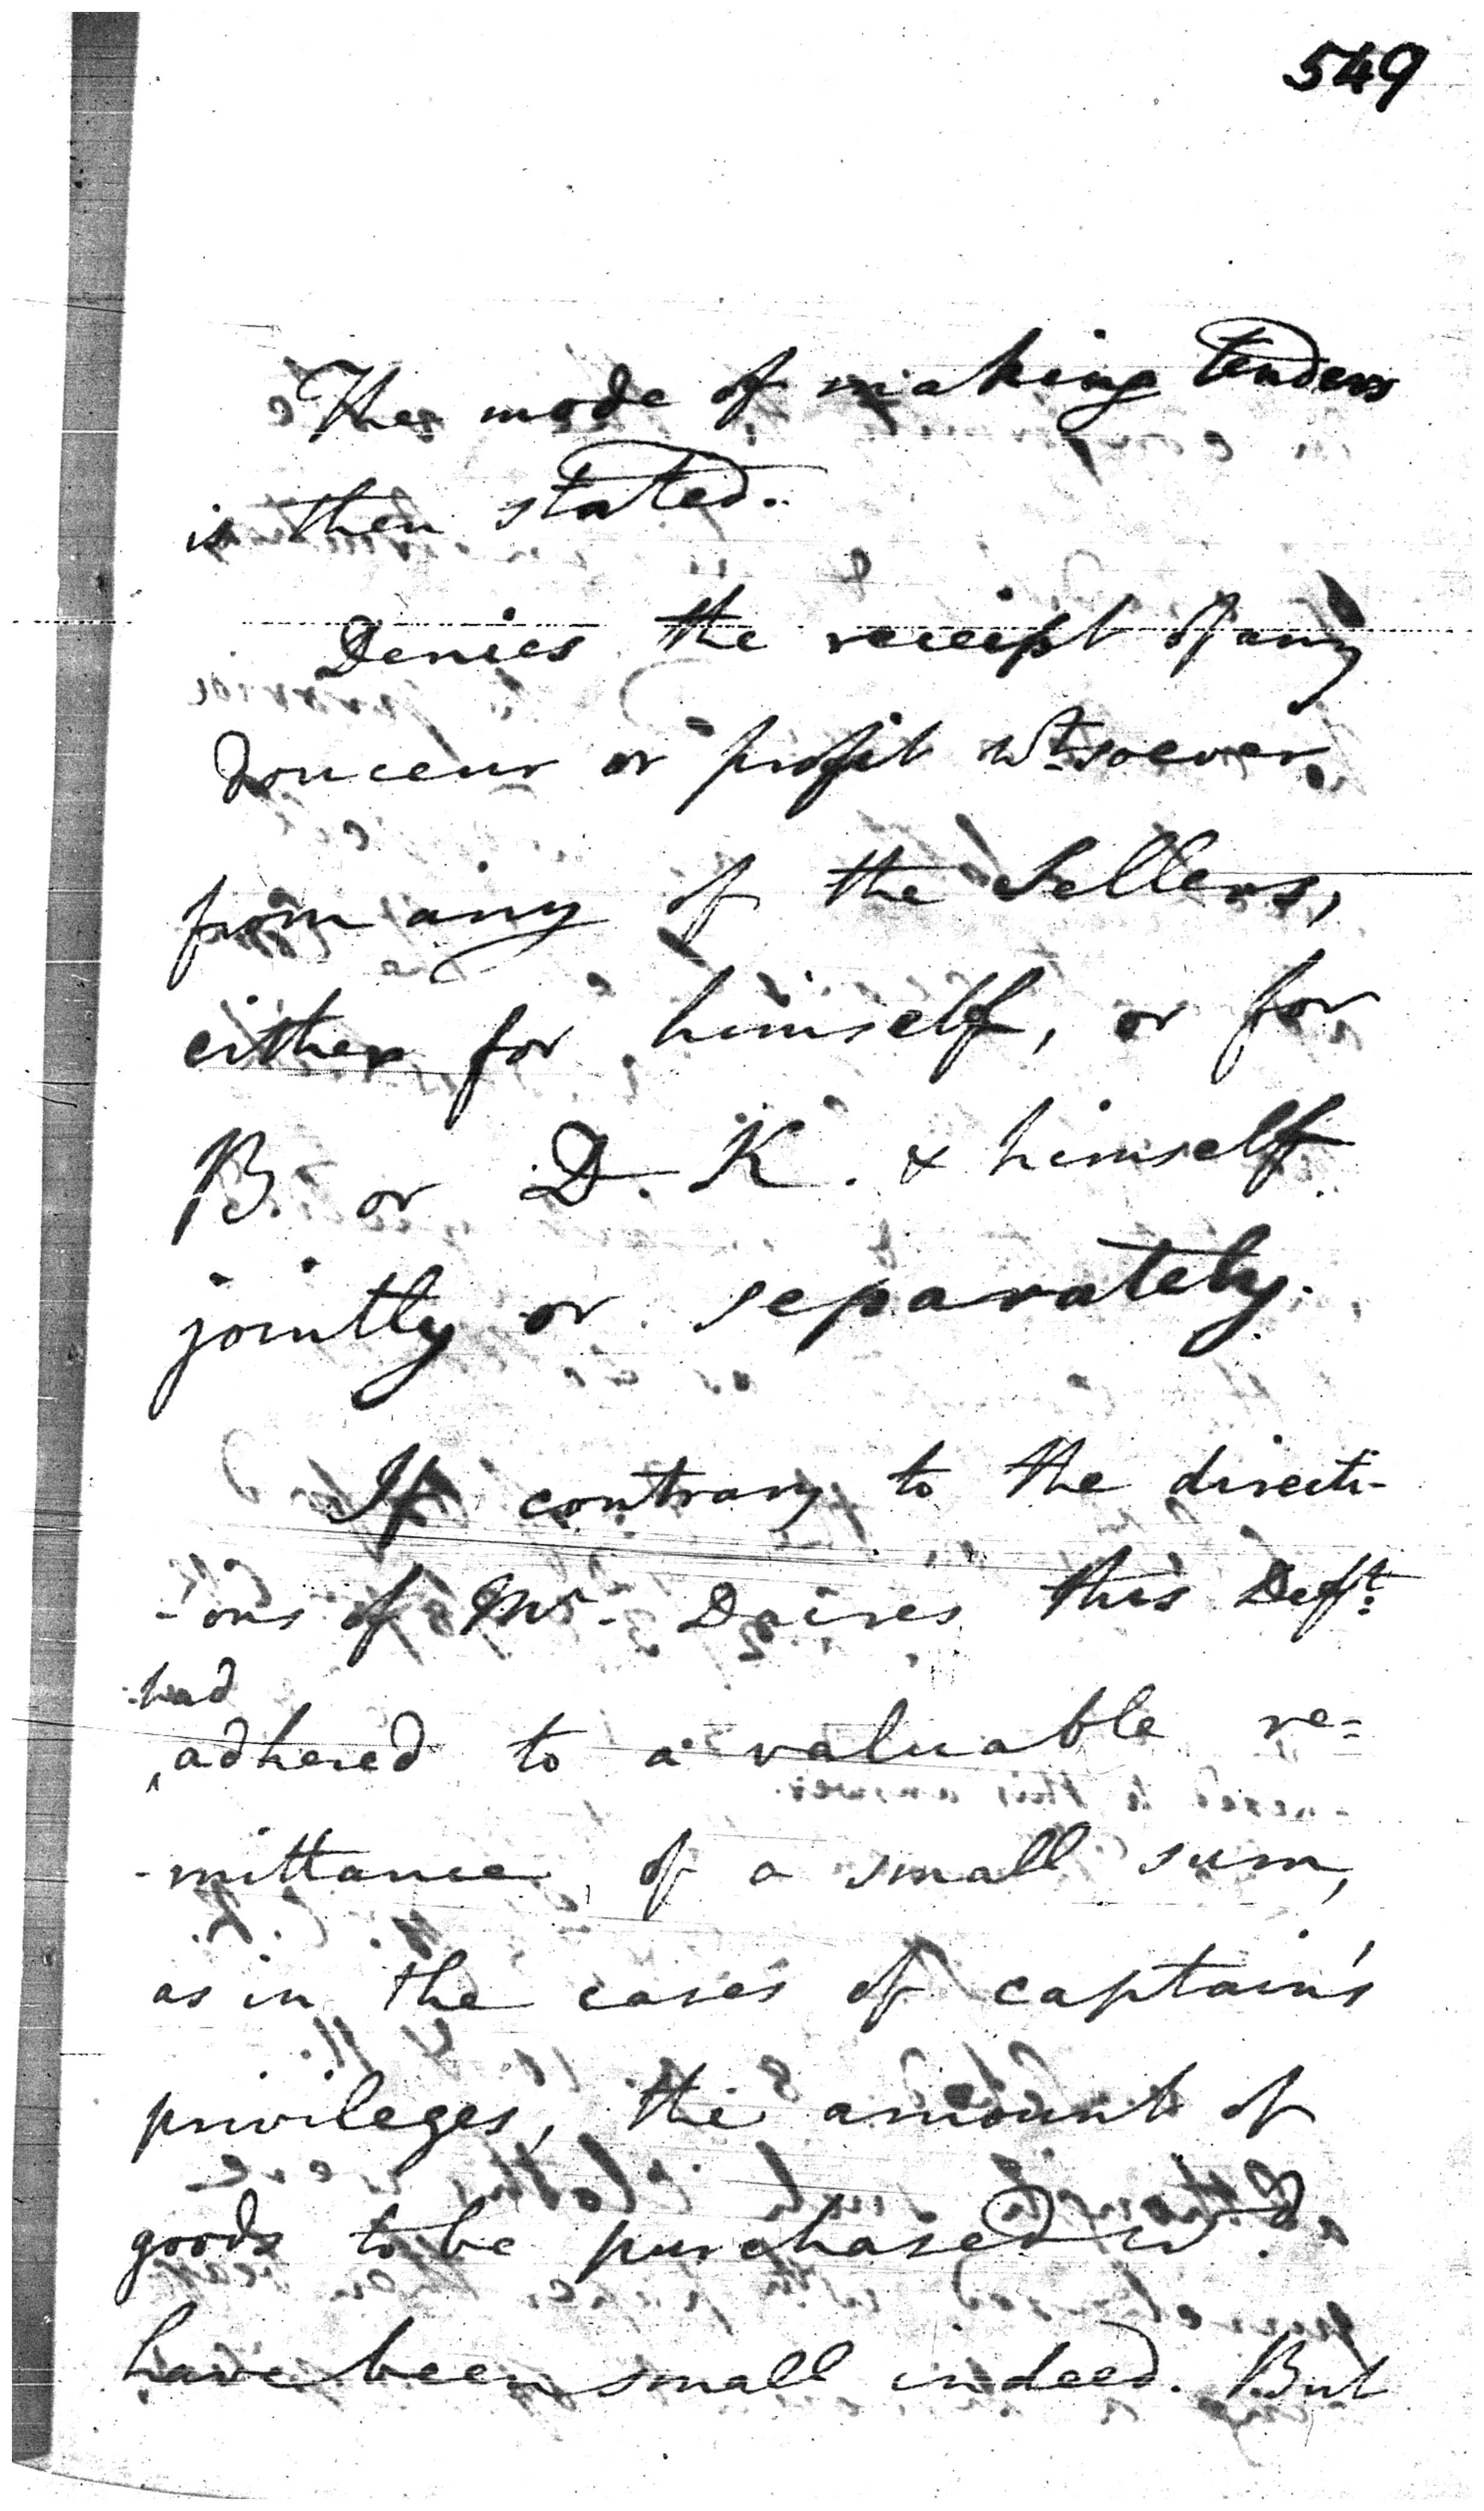 549
The mode of making tenders
is then stated.
Denies the receipt of any
douceur or profit wtsoever
from any of the Sellers,
either for himself, or for
B. or D. K. & himself
jointly or separately.
If contrary to the directi-
-ons of Mr. Daires this Deft:
had
‸adhered to a valuable re=
-mittance of a small sum,
as in the cases of captain's
privileges, the amount of
goods to be purchased wd.
have been small indeed. But